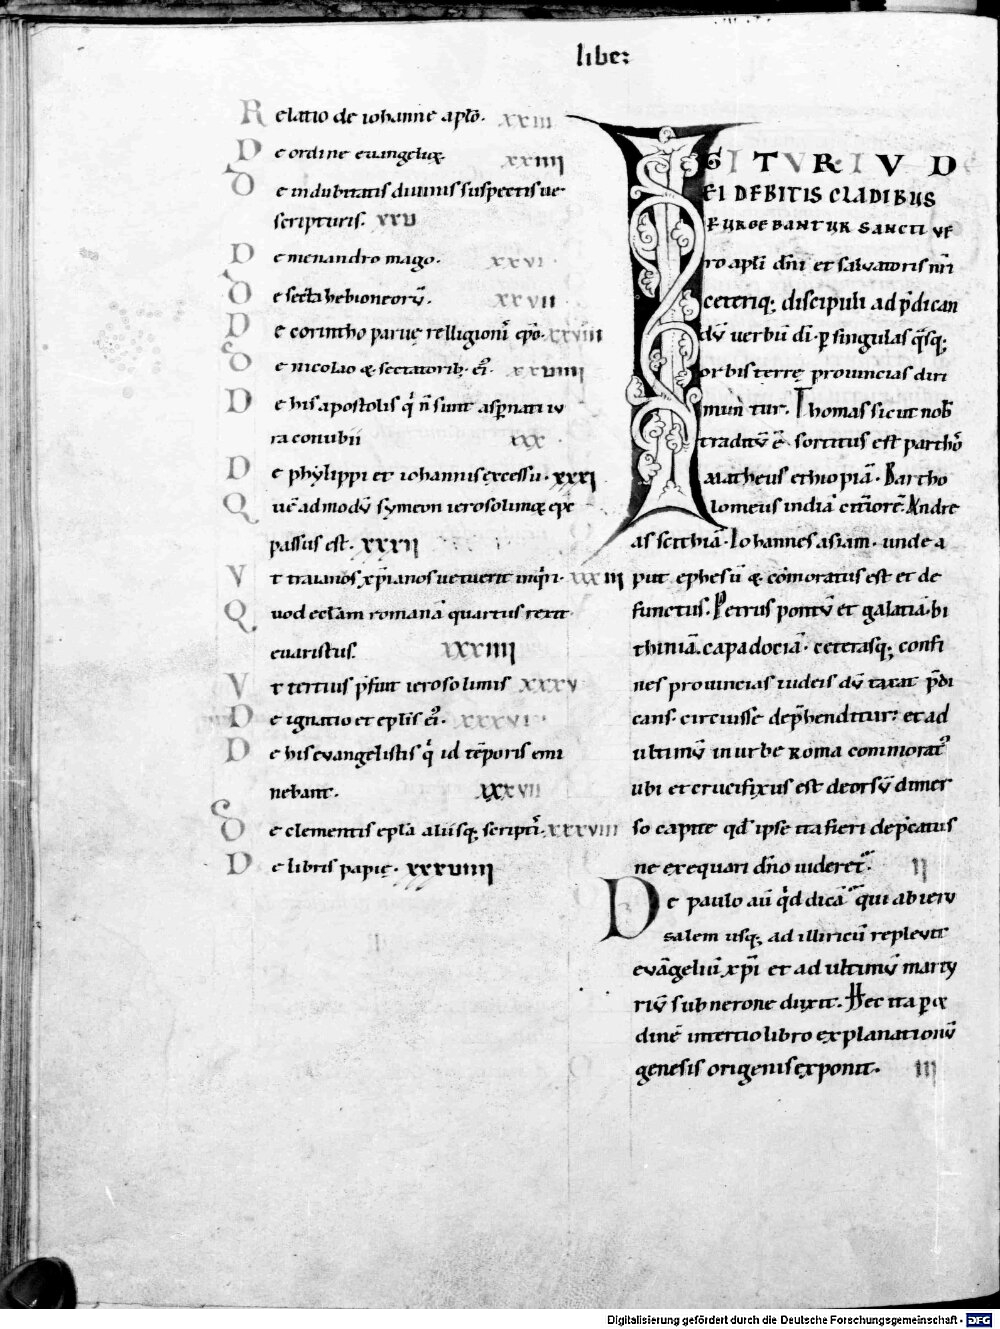 liber
Relatio de iohanne aplo̅. xxiii
De ordine euangelii xxiiii
De indubitatis diuinis suspectis ue
scripturis. xxv
De menandro mago. xxvi
De secta hebioneorū. xxvii
De corintho parue relligioni ep̅o. xxviii
De nicolao & sectatorib. ei. xxviiii
De his apostolis q n̅ sunt aspnati iu
ra conubii xxx.
De phylippi et iohannis excessu. xxxi
Que̅admodū symeon ierosolimę ep̅c
passus est. xxxii
Vt traianos xp̅ianos uetuerit inqri. xxxiii
Quod eccl̅am romana̅ quartus rexit
euaristus. xxxiiii
Vt tertius p̅fuit ierosolimis xxxv
De ignatio et epl̅is ei. xxxvi.
De his evangelistis q id te̅poris emi
nebant. xxxvii
De clementis epl̅a aliisq; scripti. xxxviii
De libris papię. xxxviiii
IGITUR IVD
EI DEBITIS CLADIBUS
PURGEBANTUR SANCTI VE
ro apl̅i dn̅i et saluatoris nr̅i
ceteriq; discipuli ad p̅dican
dū uerbū di̅. p singulas q̅sq;
orbis terrę prouincias diri
muntur. Thomas sicut nob
traditū e̅. sortitus est partho̅
Matheus ethiopia̅. Bartho
lomeus india̅ citiore̅. Andre
as scithia̅. Iohannes asiam. unde a
put ephesu̅ & co̅moratus est et de
functus. Petrus pontū et galatia̅. bi
thinia̅. capadocia̅. ceterasq; confi
nes prouincias iudeis dū taxat p̅di
cans. circuisse dep̅henditur; et ad
ultimū in urbe Roma commorat
ubi et crucifixus est deorsū dimer
so capite qd̅ ipse ita fieri dep̅catus
ne exequari dn̅o uideret. ii
De paulo au̅ qd dica̅ qui ab ieru
salem usq; ad illiricu̅ repleuit
eva̅geliu̅ xp̅i et ad ultimū marty
riū sub nerone duxit. Hec ita p or
dine̅ in tertio libro explanationū
genesis origenis exponit. iii
Digitalisierung gefördert durch die Deutsche Forschungsgemeinschaft - DFG